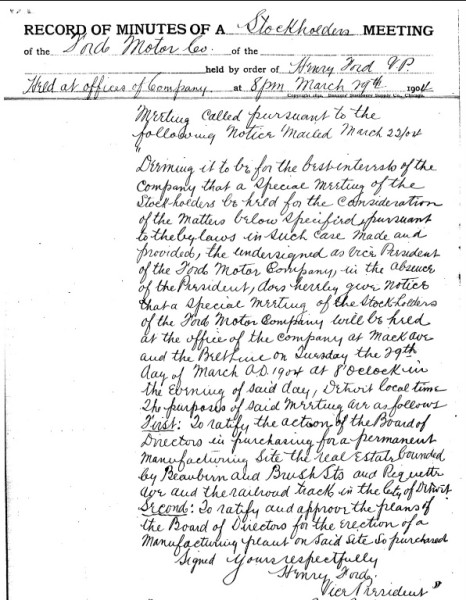 RECORD OF MINUTES OF A Stockholders MEETING
of the Ford Motor Co. of the
held by order of Henry Ford V.P.
Held at offices of Company. at 8pm March 29th 1904
Meeting Called pursuant to the
following Notice Mailed March 22/04
"Deeming it to be for the best interests of the
Company that a Special Meeting of the
Stockholders be held for the Consideration
of the Matters below specified, pursuant
to the by laws in such case Made and
provided, the undersigned as Vice President
of the Ford Motor Company, in the absence
of the President, does hereby give Notice
that a Special Meeting of the Stockholders
of the Ford Motor Company will be held
at the office of the Company at Mack Ave
and the Belt line on Tuesday the 29th
day of March A.D. 1904 at 8 Oclock in
the evening of said day, Detroit local time
The purposes of said Meeting are as follows
First: To ratify the action of the Board of
Directors in purchasing for a permanent
Manufacturing Site the real Estate bounded
by Beaubern and Brush Sts and Piquette
Ave and the railroad track in the City of Detroit
Second: To ratify and approve the plans of
the Board of Directors for the erection of a
Manufacturing plant on Said Site So purchased
Signed Yours respectfully
Henry Ford.
Vice President"